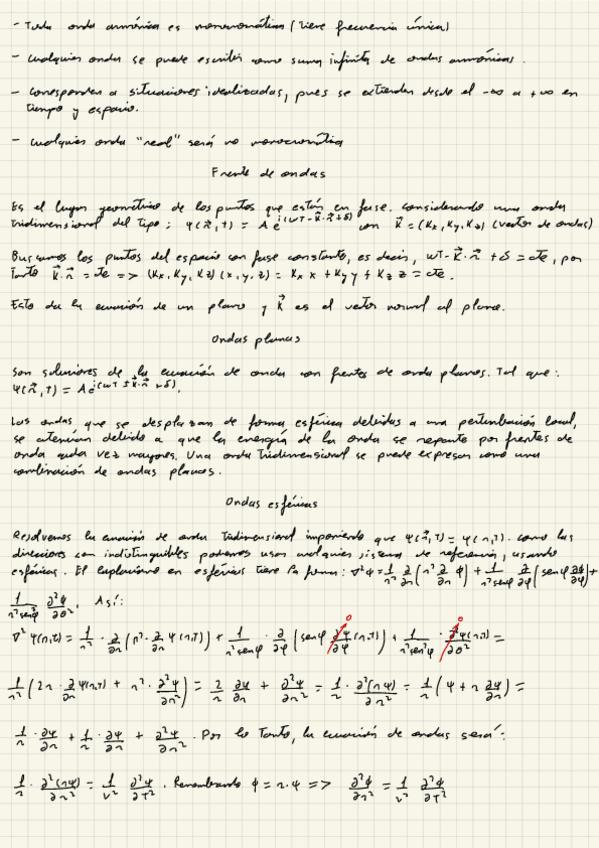 - Toda onda armónica es monocromática (tiene frecuencia única)
- Cualquier onda se puede escribir como suma infinita de ondas armónicas.
- Corresponden a situaciones idealizadas, pues se extienden desde el -∞ a +∞ en
tiempo y espacio.
- Cualquier onda "real" será no monocromática
Frente de ondas
Es el lugar geométrico de los puntos que están en fase. Considerando una onda
tridimensional del tipo: Ψ(r⃗,t) = A e^{i(ωt-k⃗·r⃗+δ)} con k⃗ = (kx, ky, kz) (vector de ondas)
Buscamos los puntos del espacio con fase constante, es decir, ωt-k⃗·r⃗ + δ = cte, por
tanto k⃗·r⃗ = cte => (kx, ky, kz)(x, y, z) = kx x + ky y + kz z = cte.
Esto da la ecuación de un plano y k⃗ es el vector normal al plano.
Ondas planas
Son soluciones de la ecuación de onda con frentes de onda planos. Tal que:
Ψ(r⃗,t) = A e^{i(ωt ± k⃗·r⃗ + δ)}.
Las ondas que se desplazan de forma esférica debidas a una perturbación local,
se atenúan debido a que la energía de la onda se reparte por frentes de
onda cada vez mayores. Una onda tridimensional se puede expresar como una
combinación de ondas planas.
Ondas esféricas
Resolvemos la ecuación de onda tridimensional imponiendo que Ψ(r⃗,t) = Ψ(r,t). Como las
direcciones son indistinguibles podemos usar cualquier sistema de referencia, usando
esféricas. El laplaciano en esféricas tiene la forma: ∇²φ = 1/r² ∂/∂r (r² ∂/∂r φ) + 1/(r² senφ) ∂/∂φ (senφ ∂φ/∂φ) +
1/(r² sen²φ) ∂²φ/∂θ². Así:
∇² Ψ(r,t) = 1/r² · ∂/∂r (r² · ∂/∂r Ψ(r,t)) + 1/(r² senφ) · ∂/∂φ (senφ ∂Ψ/∂φ (r,t)) 0 + 1/(r² sen²φ) · ∂²Ψ/∂θ² (r,t) 0 =
1/r² (2r · ∂/∂r Ψ(r,t) + r² · ∂²Ψ/∂r²) = 2/r ∂Ψ/∂r + ∂²Ψ/∂r² = 1/r · ∂²(rΨ)/∂r² = 1/r (Ψ + r ∂Ψ/∂r) =
1/r · ∂Ψ/∂r + 1/r · ∂Ψ/∂r + ∂²Ψ/∂r². Por lo tanto, la ecuación de ondas será:
1/r · ∂²(rΨ)/∂r² = 1/v² ∂²Ψ/∂t². Renombrando φ = r·Ψ => ∂²φ/∂r² = 1/v² ∂²φ/∂t²